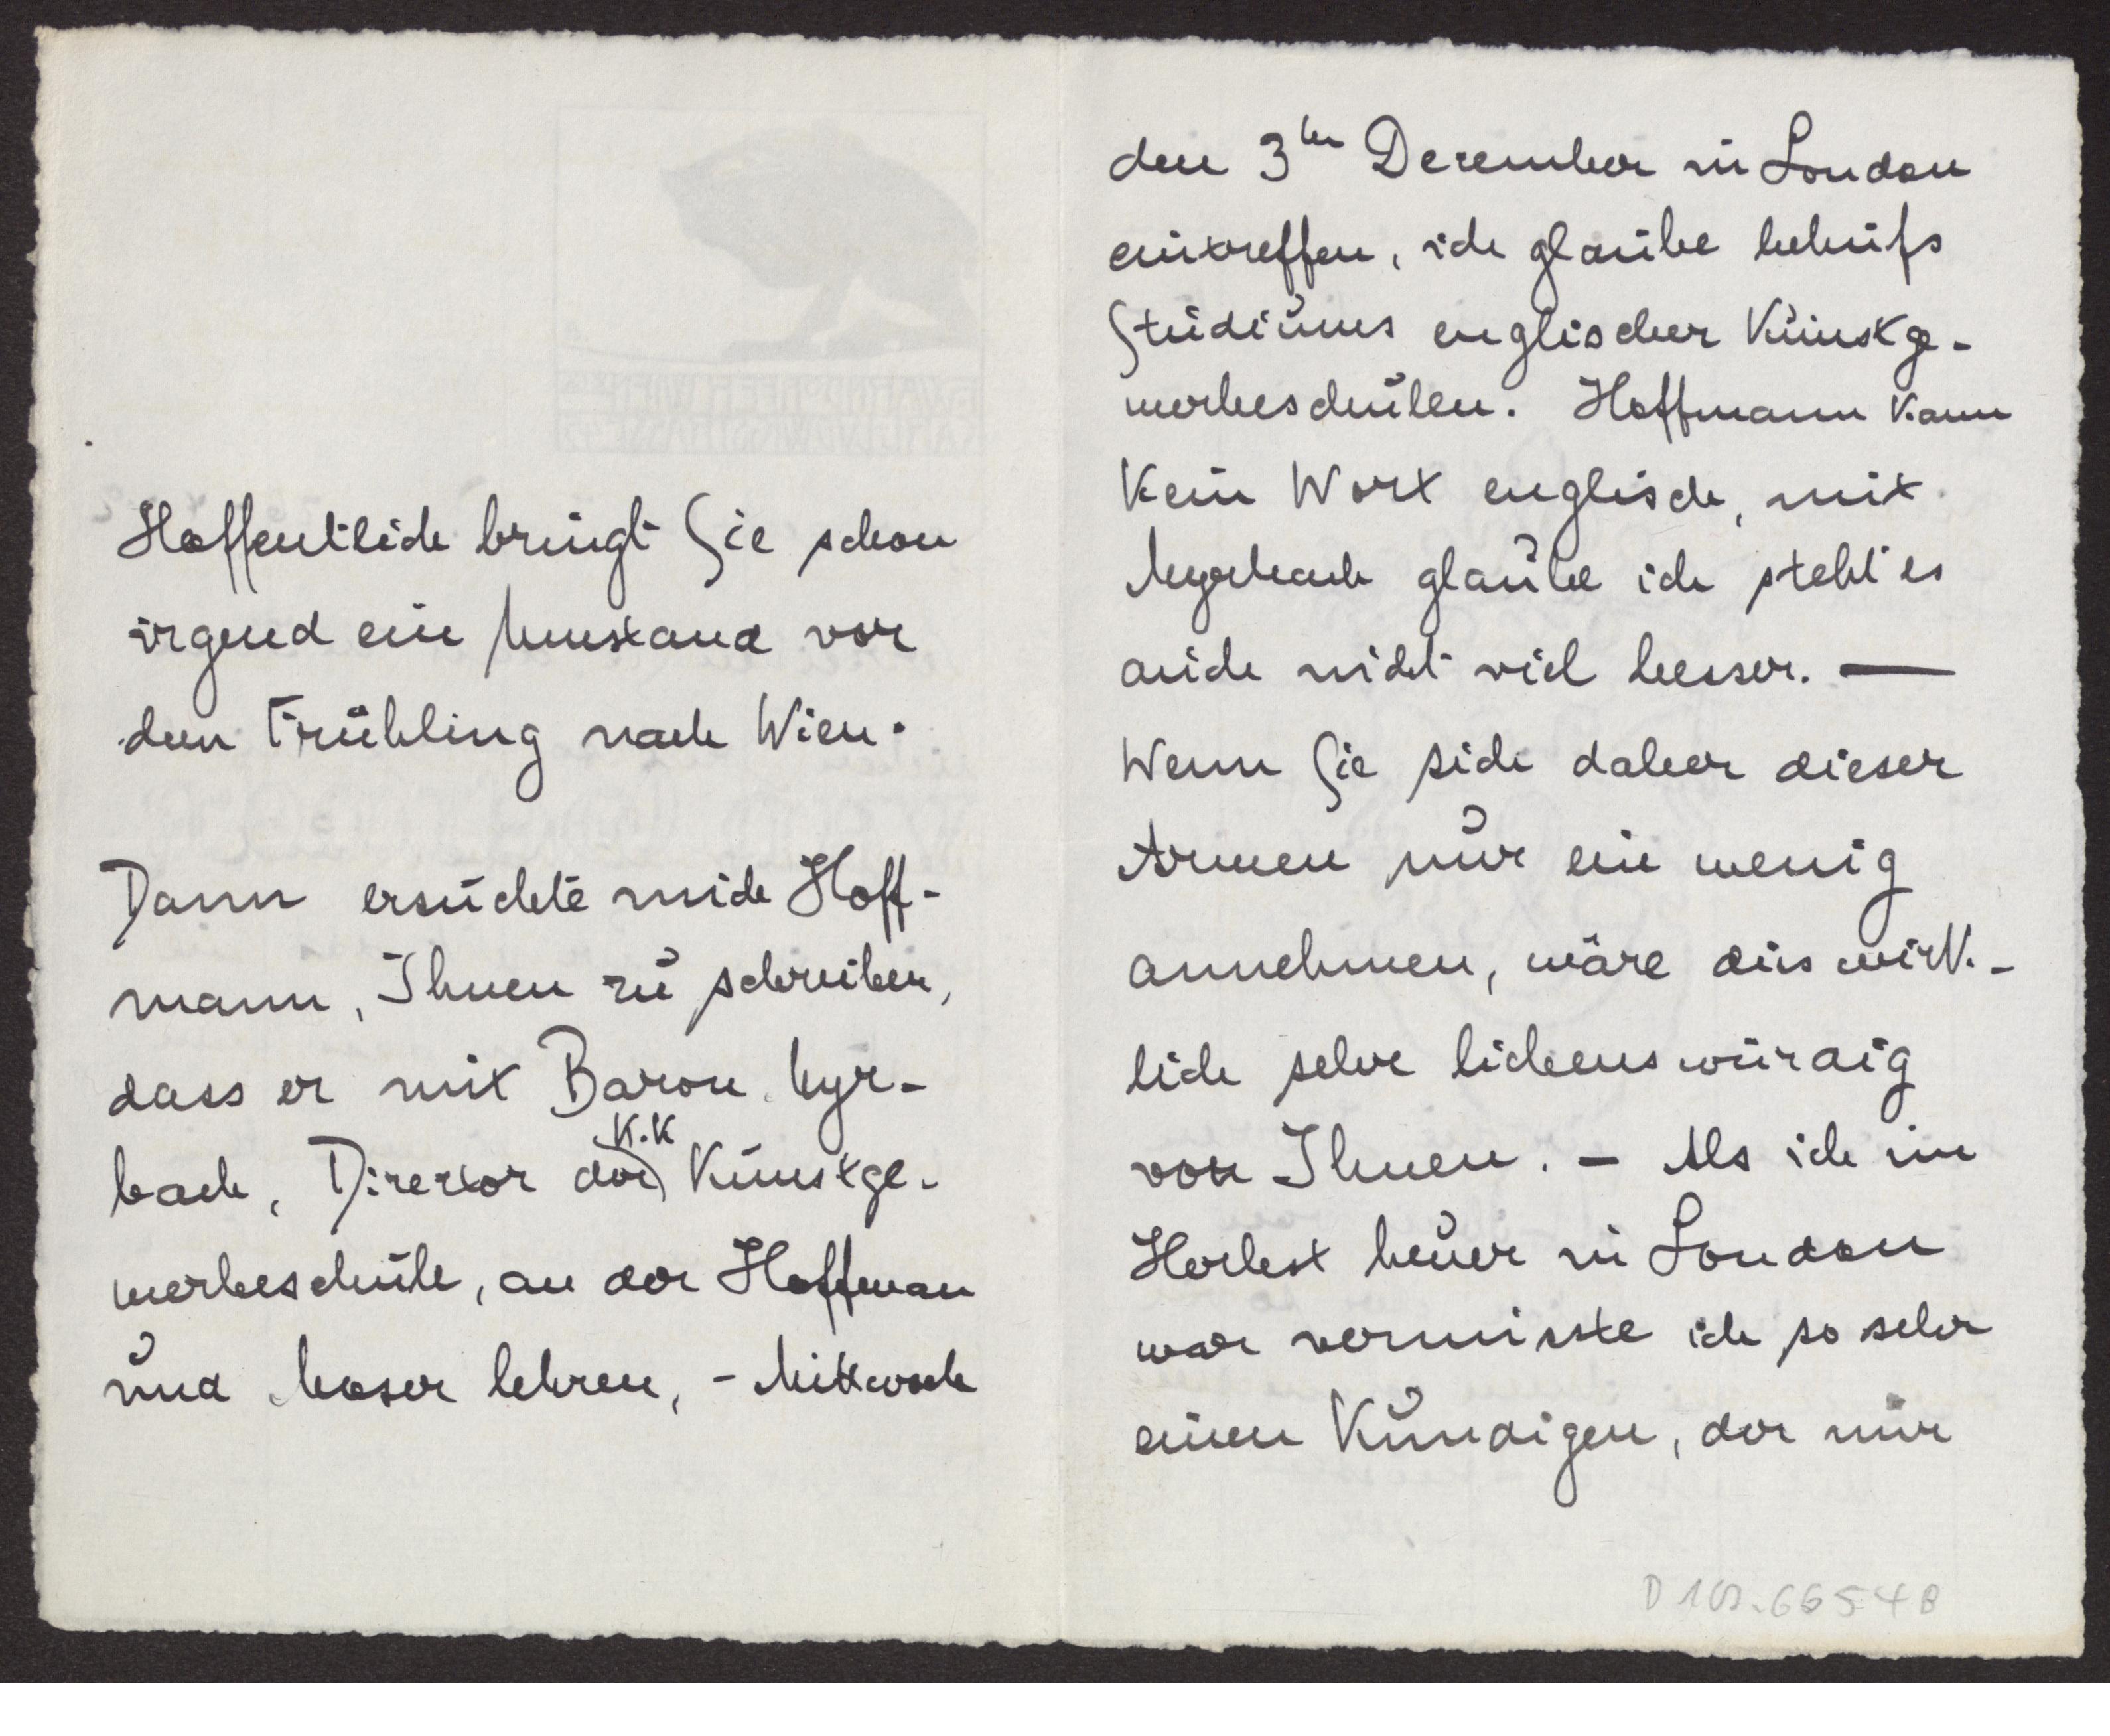 Hoffentlich bringt Sie schon
irgend ein Umstand vor
dem Frühling nach Wien.
Dann ersuchte mich Hoff-
mann, Ihnen zu schreiben,
dass er mit Baron Myr-
bach, Director der K.K Kunstge-
werbeschule, an der Hoffman
und Moser lehren, - Mittwoch
den 3ten December in London
eintreffen, ich glaube behufs
Studiums englischer Kunstge-
werbeschulen. Hoffmann kann
kein Wort englisch, mit
Myrbach glaube ich steht es
auch nicht viel besser. —
Wenn Sie sich daher dieser
Armen nur ein wenig
annehmen, wäre dies wirk-
lich sehr liebenswürdig
von Ihnen. - Als ich im
Herbst heuer in London
war vermisste ich so sehr
einen Kundigen, der mir
D 109.66548